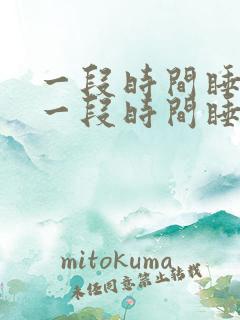 一段時間睡
一段時間睡
mitokuma
未任同意禁止转载